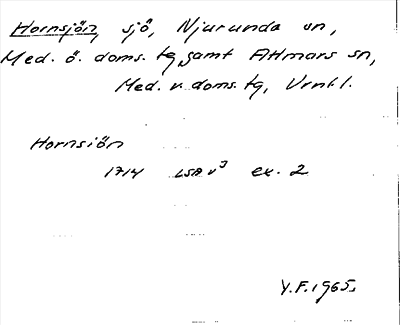 Hornsjön, sjö, Njurunda sn,
Med. ö. doms. tg, samt Attmars sn,
Med. v. doms. tg, Vrnl.
Hornsiön
1714 LSA v³ ex. 2
Y.F. 1965.